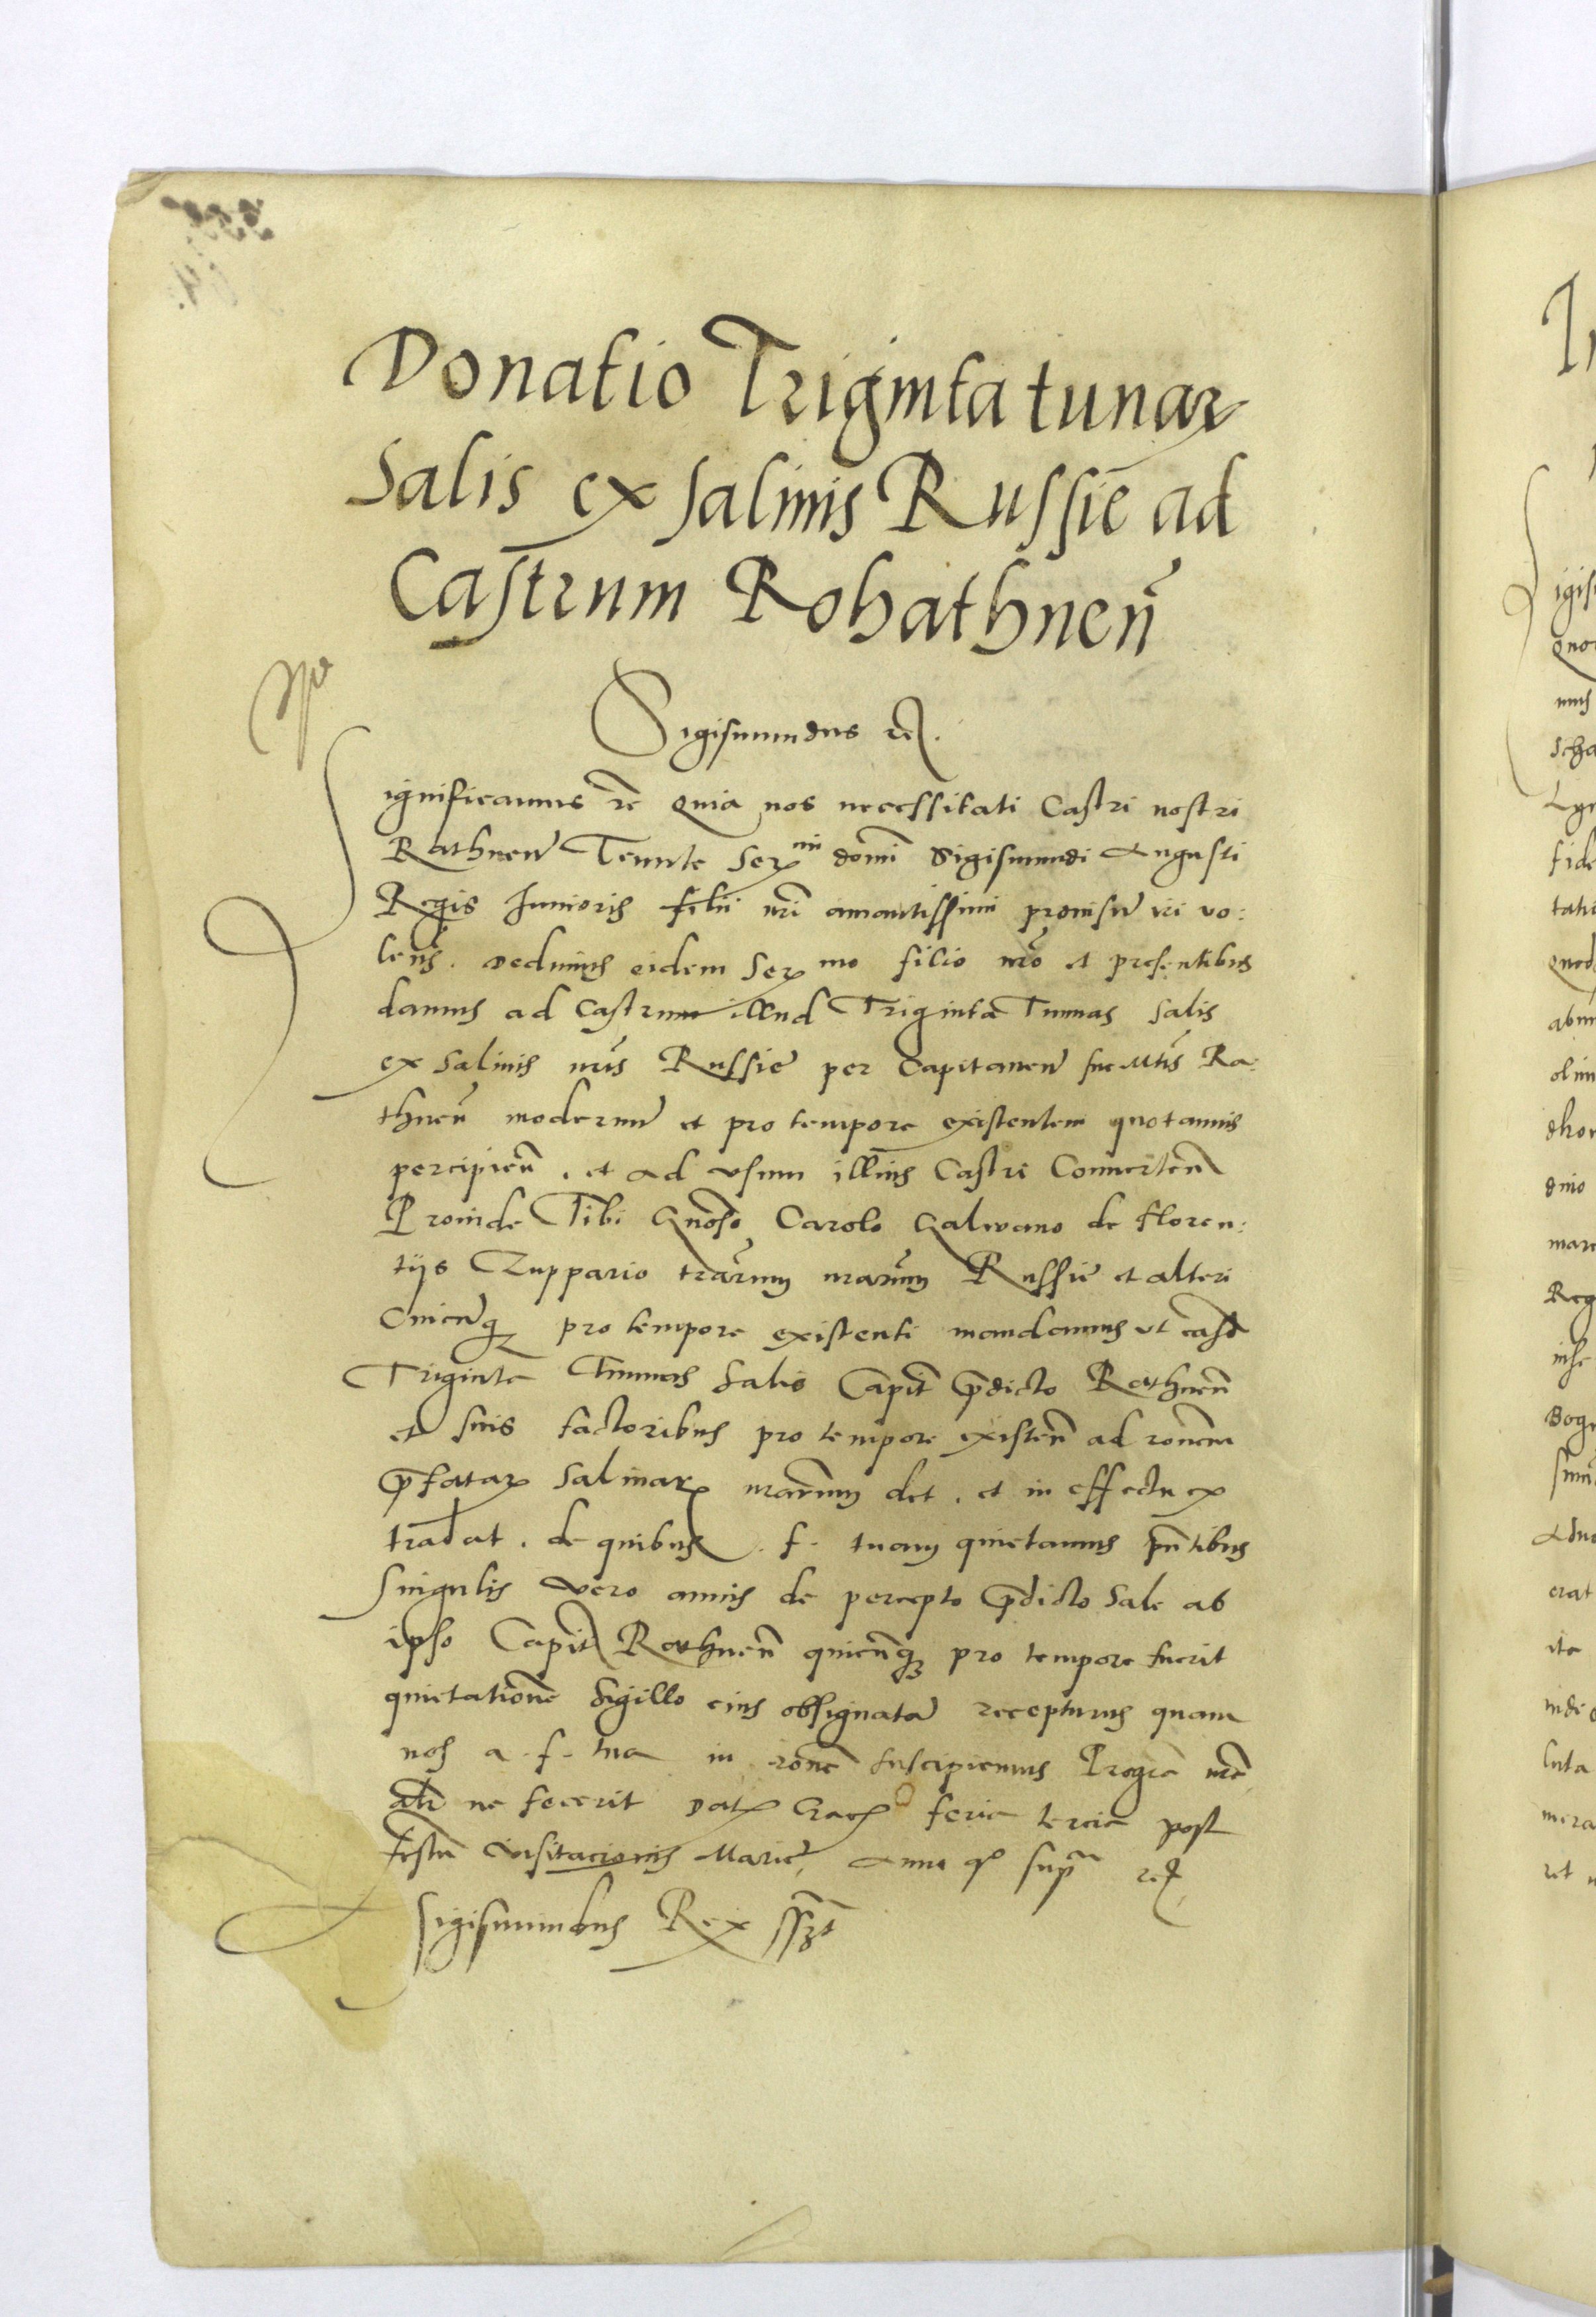 Donatio Triginta tunar
Salis ex salinis Russie ad
Castrum Rohathneñ
Sigismundus rex.
Significamus rc̄ Quia nos necessitati Castri nostri
Rathneñ Tenute Ser^mi domi Sigismundi Augusti
Regis Junioris filii nr̄i amantissimi provisũ iri vo:
leñs. Dedimus eidem Ser mo filio nr̄o et presentibus
damus ad Castrum illud Triginta Tunnas Salis
ex Salinis nr̄is Russie per Capitaneũ sue Mtis Ra:
thneñ modernũ et pro tempore existentem quotannis
percipieñ. et ad usum illius Castri Converteñ
Proinde Tibi Gnoso Carolo Galwano de Floren:
tijs Zuppario trarum nrarum Russie et alteri
Cuicunq pro tempore existenti mandamus ut easd
Triginta Tunnas Salis Capit p̄dicto Rathneñ
et suis factoribus pro tempore existeñ ad ronem
p̄fatar Salinar nrarum det. et in effectu ex
tradat. de quibus. f. tuam quietamus pñtibus
Singulis vero annis de percepto p̄dicto Sale ab
ipso Capit Rathneñ quicunq pro tempore fuerit
quietationē Sigillo eius obsignatā recepturus quam
nos a. f. tua in ronē suscipiemus Pro gra nra
alr ne fecerit Dat Crac feria tercia post
festū Visitacionis Marie, Anno q^o supra
Sigismundus Rex sszt